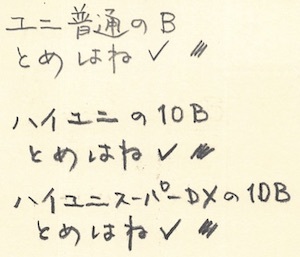 ユニ普通のB
とめはね✓
ハイユニの10B
とめはね✓
ハイユニスーパーDXの10B
とめはね✓